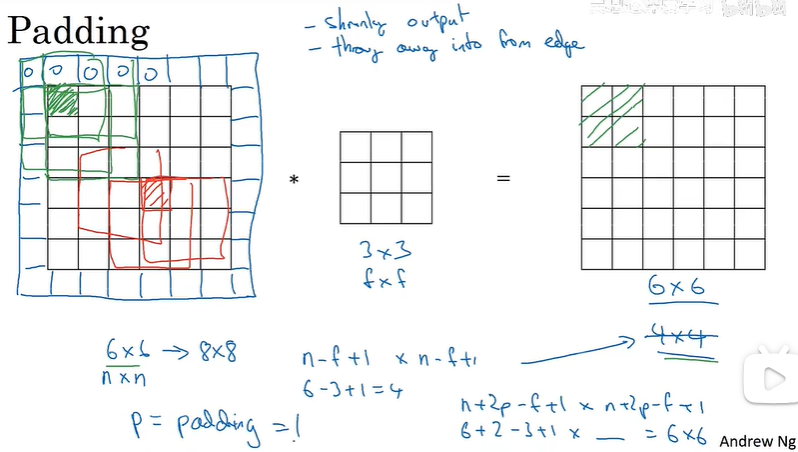 Padding
- shrinky output
- throw away info from edge
0 0 0 0 0
*
=
3 × 3
f × f
6 × 6
4 × 4
6 × 6 → 8 × 8
n × n
n-f+1 × n-f+1
6-3+1 = 4
p = padding = 1
n+2p-f+1 × n+2p-f+1
6+2-3+1 × __ = 6×6
Andrew Ng